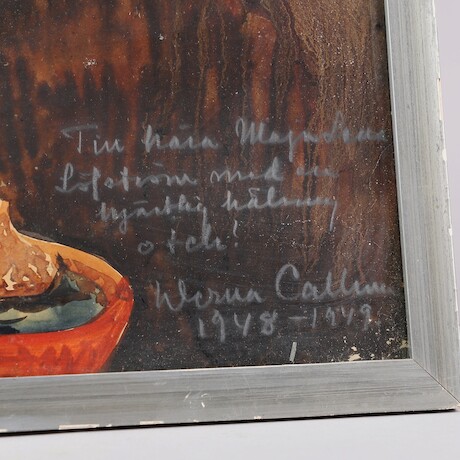 Till kära Maja Lena
Löfström med en
hjärtlig hälsning
o tack!
Verna Callun
1948 – 1949